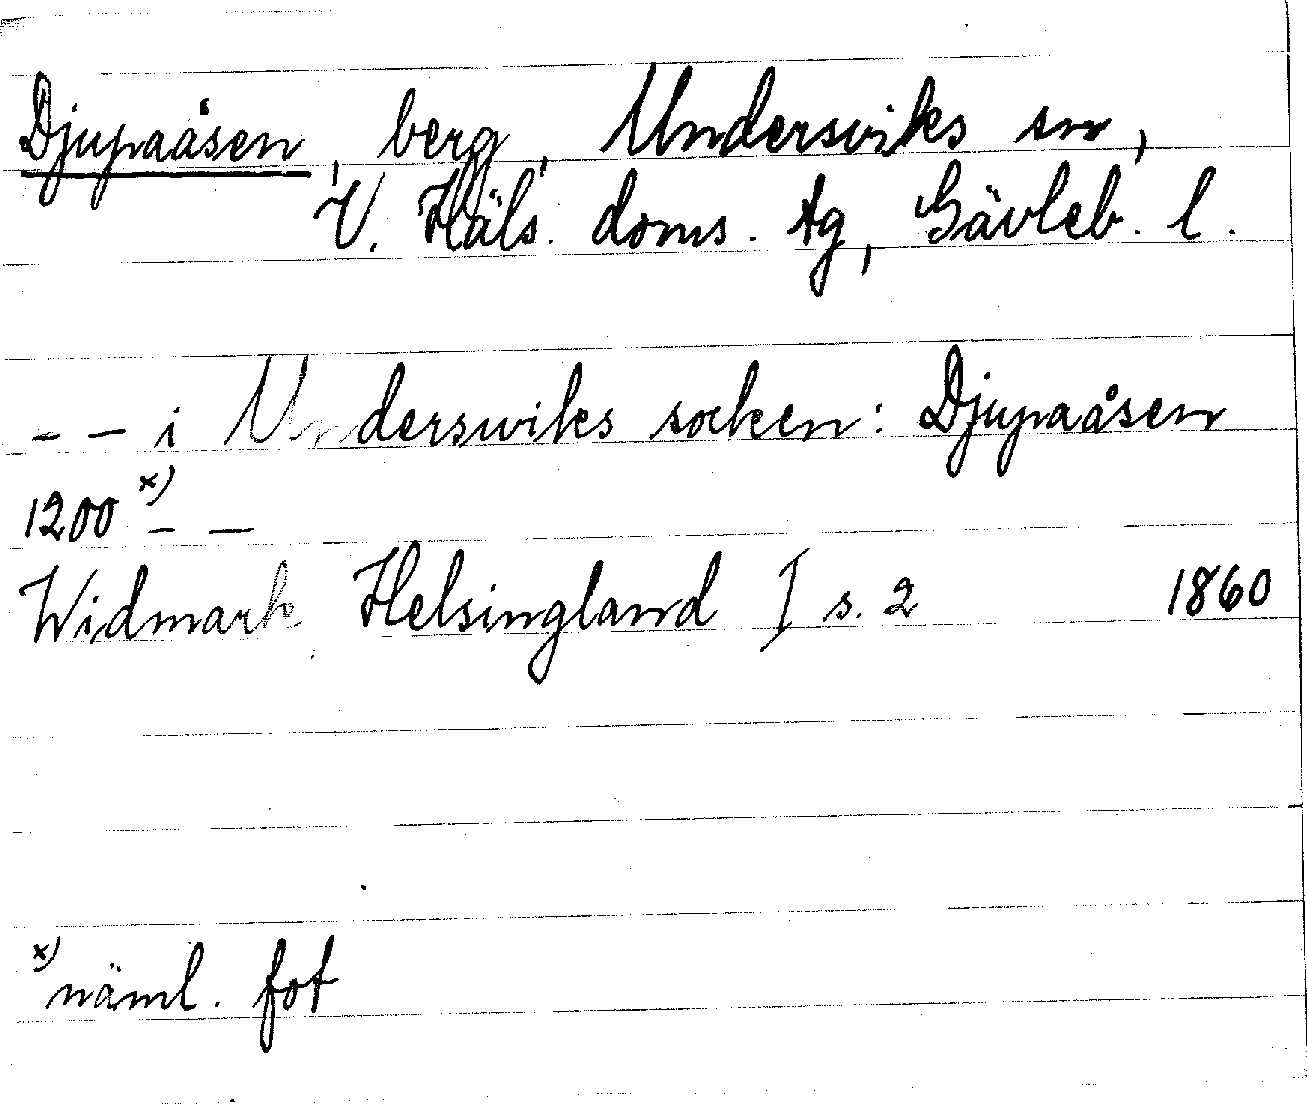 Djupaåsen, berg, Undersviks sn,
V. Häls. doms. tg, Gävleb. l.
- - i Underswiks socken: Djupaåsen
1200 x) - -
Widmark Helsingland I s. 2 1860
x) näml. fot